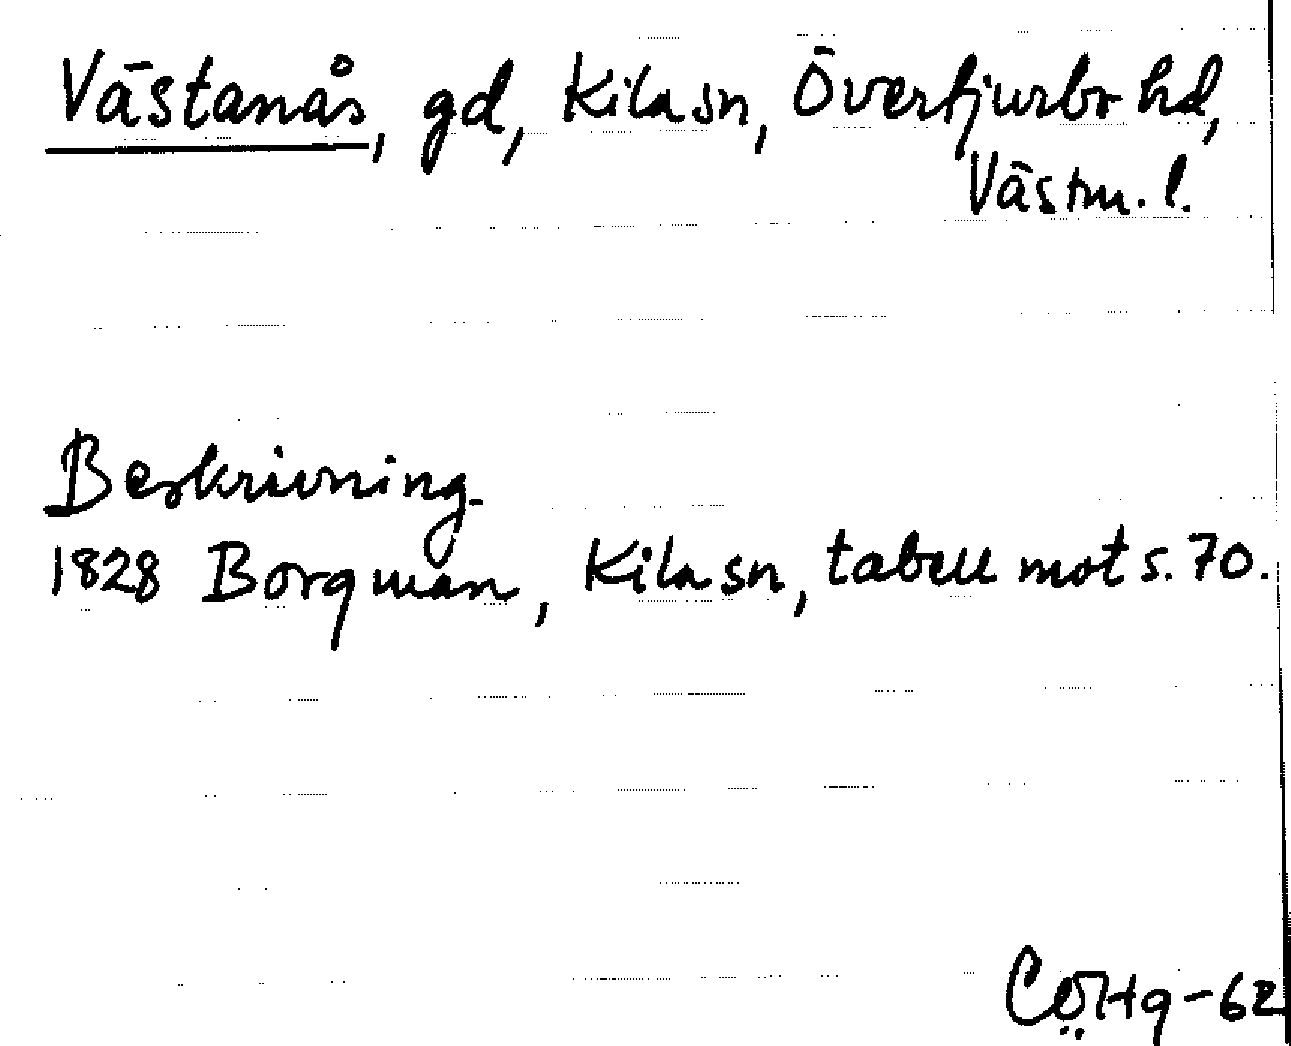 Västanås, gd, Kila sn, Övertjurbo hd,
Västm. l.
Beskrivning
1828 Borgman, Kila sn, tabell mot s. 70.
-62